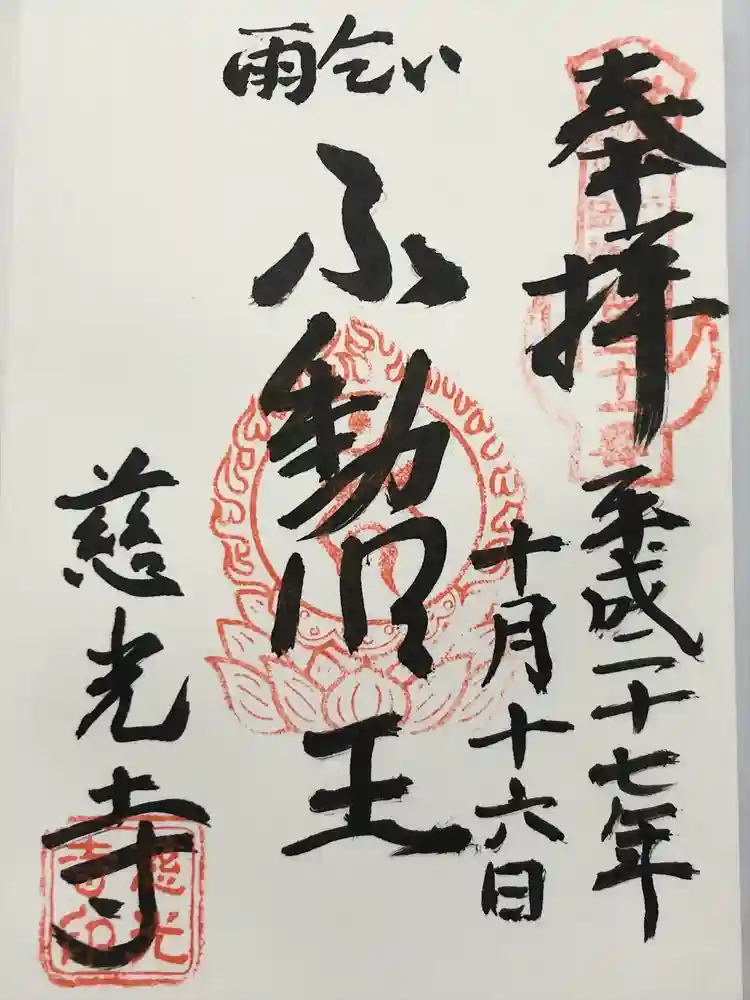 奉拝
平成二十七年
十月十六日
雨乞い
ふ動明王
慈光寺
慈光
寺印